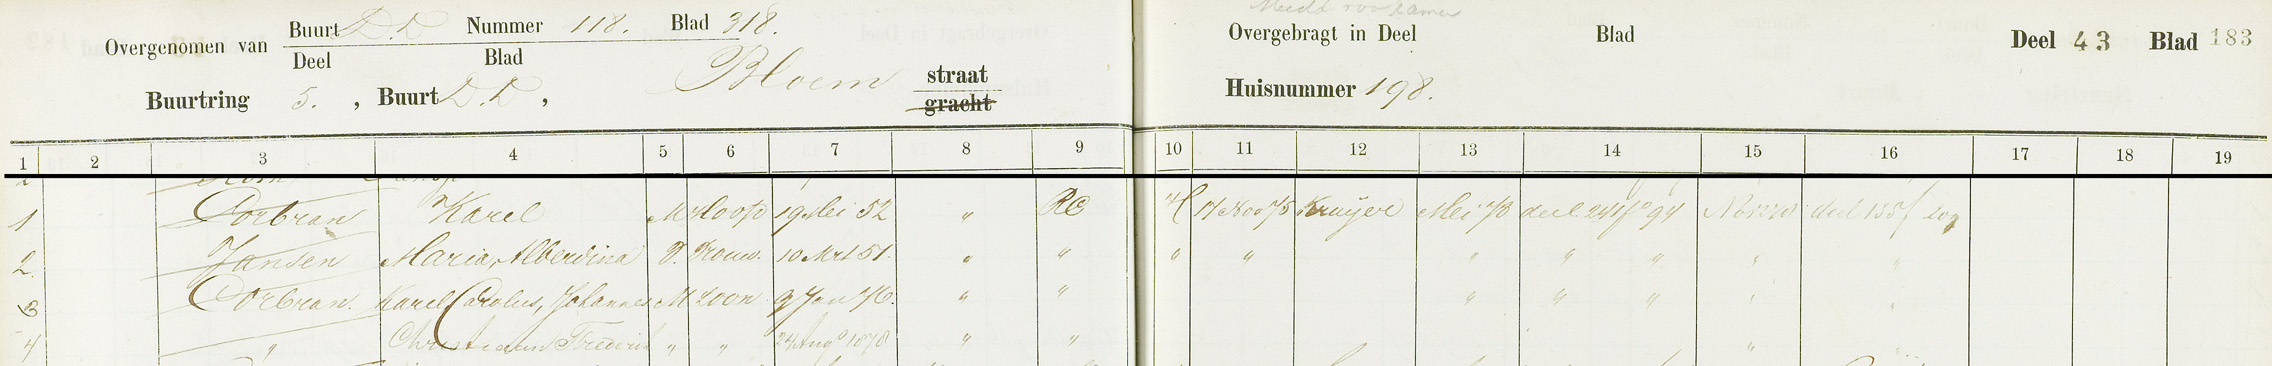 Overgenomen van Buurt D.D Nummer 118. Blad 318.
Deel Blad
Buurtring 5. , Buurt D.D , Bloem straat
gracht
Overgebragt in Deel Blad Deel 43 Blad 183
Huisnummer 198.
1 2 3 4 5 6 7 8 9 10 11 12 13 14 15 16 17 18 19
1 Corbran Karel M Hoofd 19 Mei 52 " RC H 17 Nov 75 Kruijer Mei 78 deel 241 fo 94 deel 135
2. Jansen Maria, Alberdina V. Vrouw. 10 Mrt 51. " " " " " " " " "
3 Corbran. Karel Carolus, Johannes M Zoon 9 Jan 76. " " " " " " "
4 " Christiaan Frederik " " 24 Aug 1878 " " "